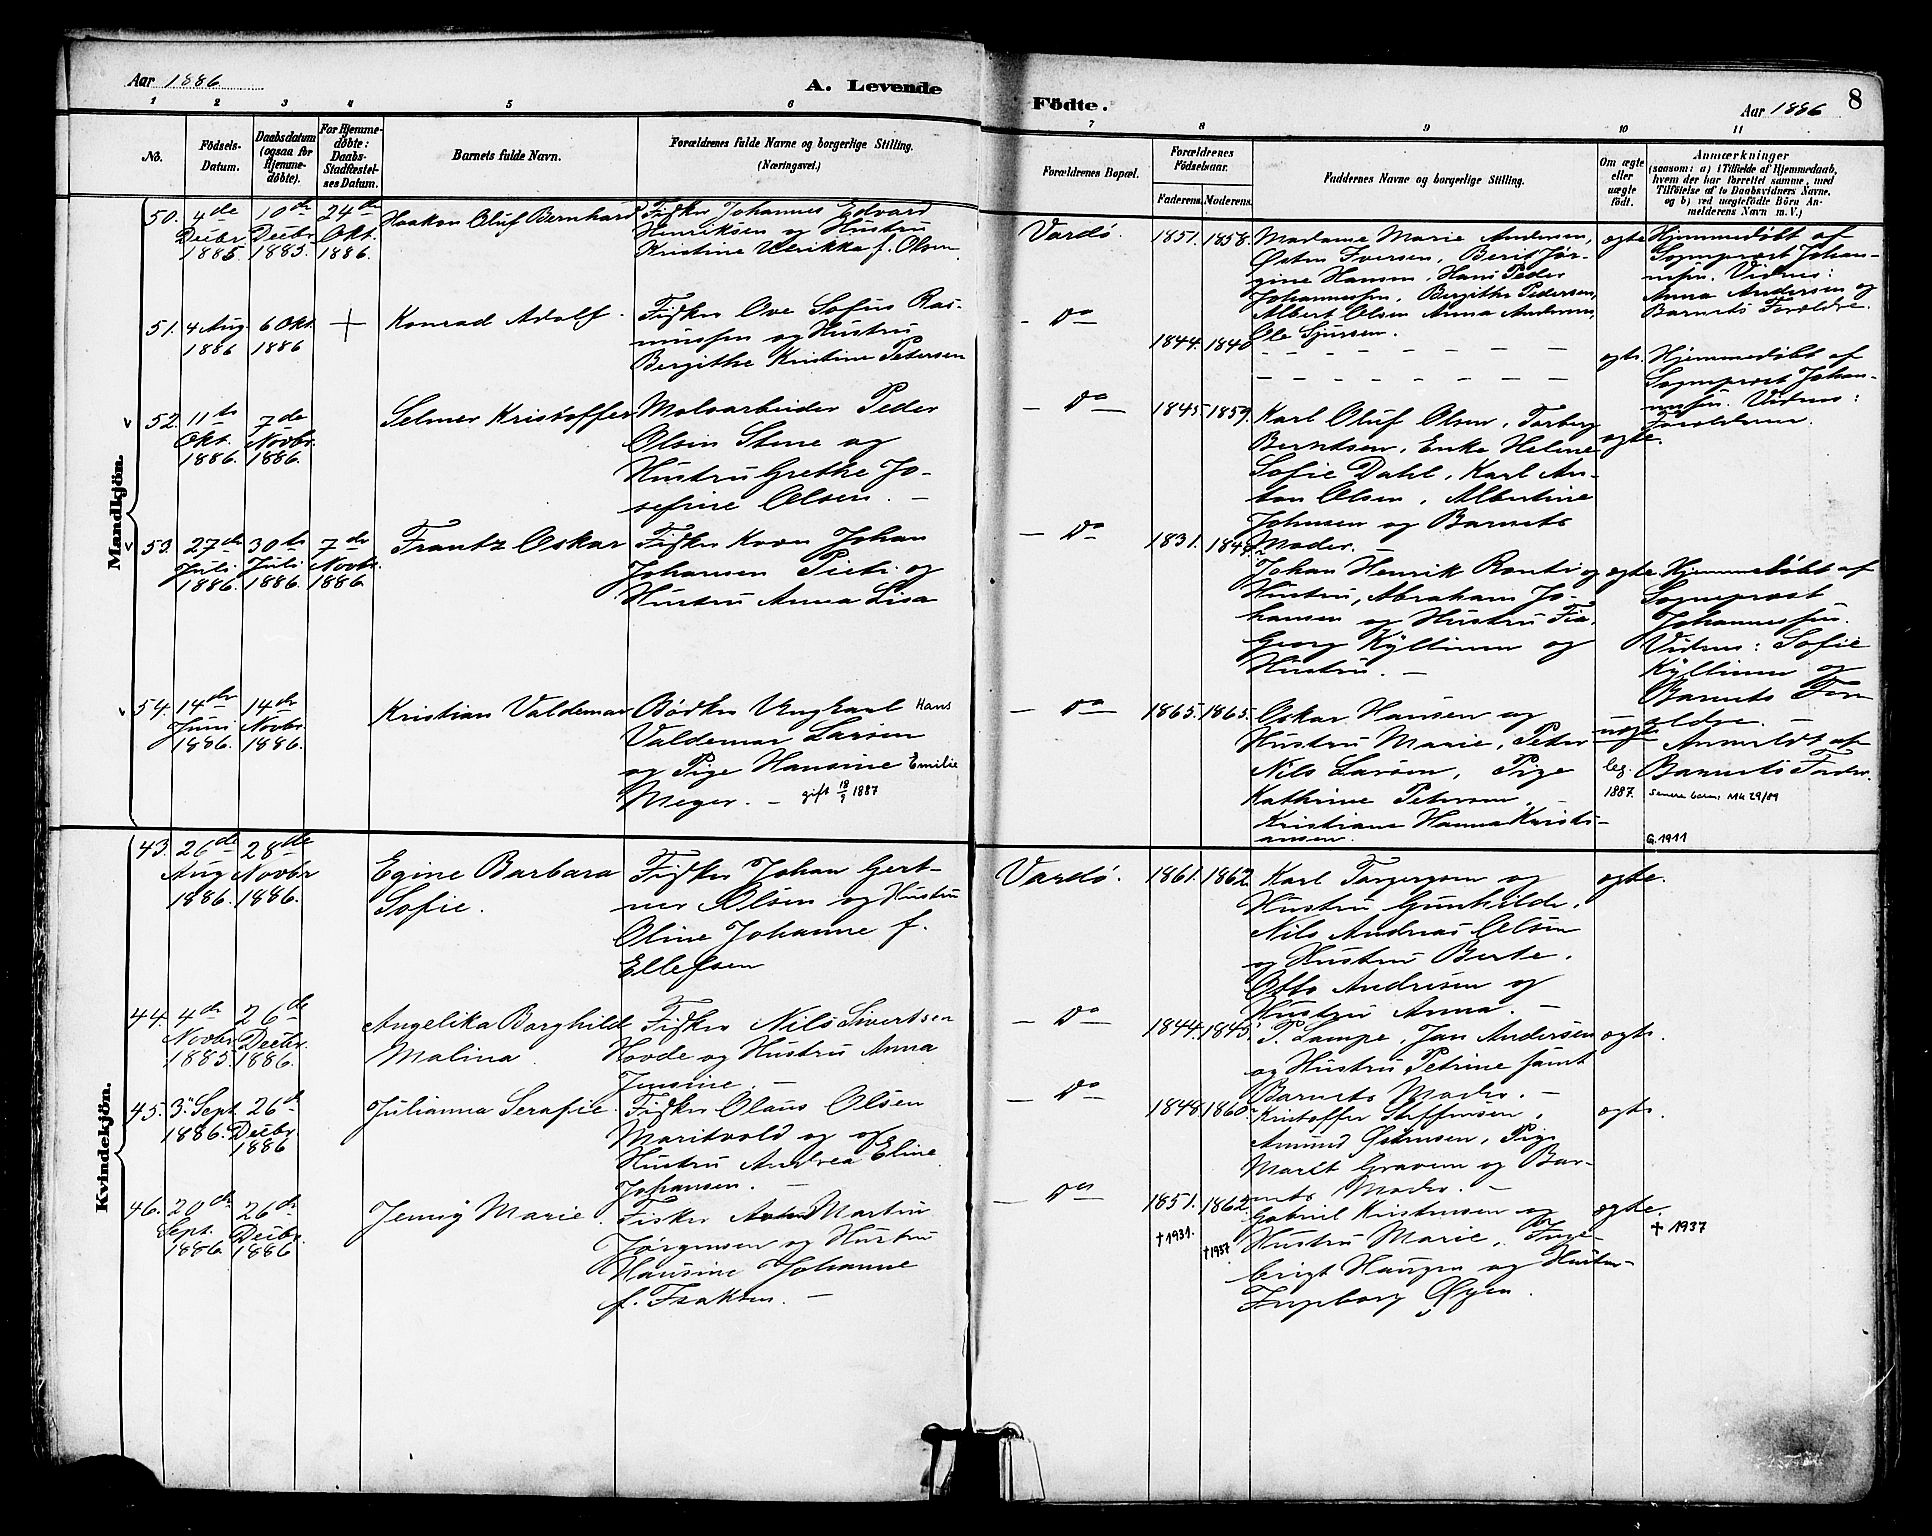 Aar 1886
A. Levende
Födte.
Aar 1886
8
1 2 3 4 5 6 7 8 9 10 11
No.
Födsels-
Datum.
Daabsdatum
(ogsaa for
Hjemme-
døbte).
For Hjemme-
døbte:
Daabs-
Stadfæstel-
ses Datum.
Barnets fulde Navn.
Forældrenes fulde Navne og borgerlige Stilling.
(Næringsvei.)
Forældrenes Bopæl.
Forældrenes
Födselsaar.
Faderens.
Moderens.
Faddernes Navne og borgerlige Stilling.
Om ægte
eller
uægte
födt.
Anmærkninger
(saasom: a) i Tilfælde af Hjemmedaab,
hvem der har forrettet samme, med
Tilföielse af to Daabsvidners Navne,
og b) ved uægtefödte Börn An-
melderens Navn m. V.)
Mandkjön.
50.
4de
Decbr
1885.
10de
Decbr
1885.
24de
Okt.
1886.
Haakon Oluf Bernhard
Fisker Johannes Edvard
Henriksen og Hustru
Kristine Ulrikke f. Olsen
Vardö.
1851.
1858.
Madame Marie Andersen,
Østen Iversen, Berit Jør-
gine Hansen, Hans Peder
Johannessen, Bergithe Pedersen,
Albert Olsen Anna Andersen,
Ole Sjursen.
ægte
Hjemmedøbt af
Sogneprest Johan-
nessen. Vidner:
Anna Andersen og
Barnets Forældre.
51.
4 Aug
1886
6 Okt.
1886
+
Konrad Adolf.
Fisker Ove Sofus Ras-
mussen og Hustru
Bergithe Kristine Petersen
- Do
1844.
1840
- - - - - - - -
- - - - - - - -
ægte.
Hjemmedøbt af
Sogneprest Johan-
nessen. Vidner:
Forældrene.
v 52.
11te
Okt.
1886.
7de
Novbr.
1886.
Selmer Kristoffer
Moloarbeider Peder
Olsen Stene og
Hustru Grethe Jo-
sefine Olsen. -
- Do -
1845.
1859.
Karl Oluf Olsen, Torberg
Berntsen, Enke Helene
Sofie Dahl, Karl An-
ton Olsen, Albertine
Johnsen og Barnets
Moder.
ægte.
v 53.
27de
Juli
1886.
30te
Juli
1886.
7de
Novbr.
1886.
Frantz Oskar
Fisker Kvæn Johan
Johansen og
Hustru Anna Lisa
- Do
1831.
Johan Henrik og
Hustru, Abraham Jo-
hansen og Hustru
Georg Kyllinen og
Hustru. -
ægte.
Hjemmedøbt af
Sogneprest
Johannessen.
Vidner: Sofie
Kyllinen og
Barnets For-
ældre. -
v 54.
14de
Juni
1886.
14de
Novbr.
1886.
Kristian Valdemar
Bødker Ungkarl Hans
Valdemar Larsen
og Pige Hansine Emilie
Meyer. - gift 18/9 1887
- Do -
1865.
1865.
Oskar Hansen og
Hustru Marie, Peter
Nils Larsen, Pige
Kathrine Petersen, -
Kristiane Hanna Kristi-
ansen.
uægte
leg.
1887.
Anmeldt af
Barnets Fader.
Senere barn: MK 29/89
G. 1911
Kvindekjön.
43.
26de
Aug
1886.
28de
Novbr
1886.
Egine Barbara
Sofie.
Fisker Johan Gert-
ner Olsen og Hustru
Oline Johanne f.
Ellefsen
Vardö.
1861.
1862
Karl Torgersen og
Hustru Gunhilde.
Nils Andreas Olsen
og Hustru Berte.
Otto Andresen og
Hustru Anna. -
ægte.
44.
4de
Novbr
1885
26de
Decbr.
1886.
Angelika Borghild
Malina.
Fisker Nils Sivertsen
Hovde og Hustru Anna
Jensine. -
- Do -
1844.
1845.
P. Lampe, Jan Andersen
og Hustru Petrine samt
Barnets Moder. -
ægte.
45.
3. Sept.
1886.
26de
Decbr
1886
Julianna Serafie.
Fisker Olaus Olsen
Maritvold og og
Hustru Andrea Eline
Johansen. -
- Do -
1848
1860.
Kristoffer Steffensen,
Amund Østensen, Pige
Marit Graven og Bar-
nets Moder. -
ægte.
46.
20de
Sept.
1886
26de
Decbr.
1886
Jenny Marie.
Fisker Martin
Jørgensen og Hustru
Hansine Johanne
f. Isaksen. -
- Do -
1851.
† 1931.
1862.
† 1937
Gabriel Kristensen og
Hustru Marie, Inge-
brigt Haugen og Hustru
Ingeborg Øyen.
ægte.
† 1937